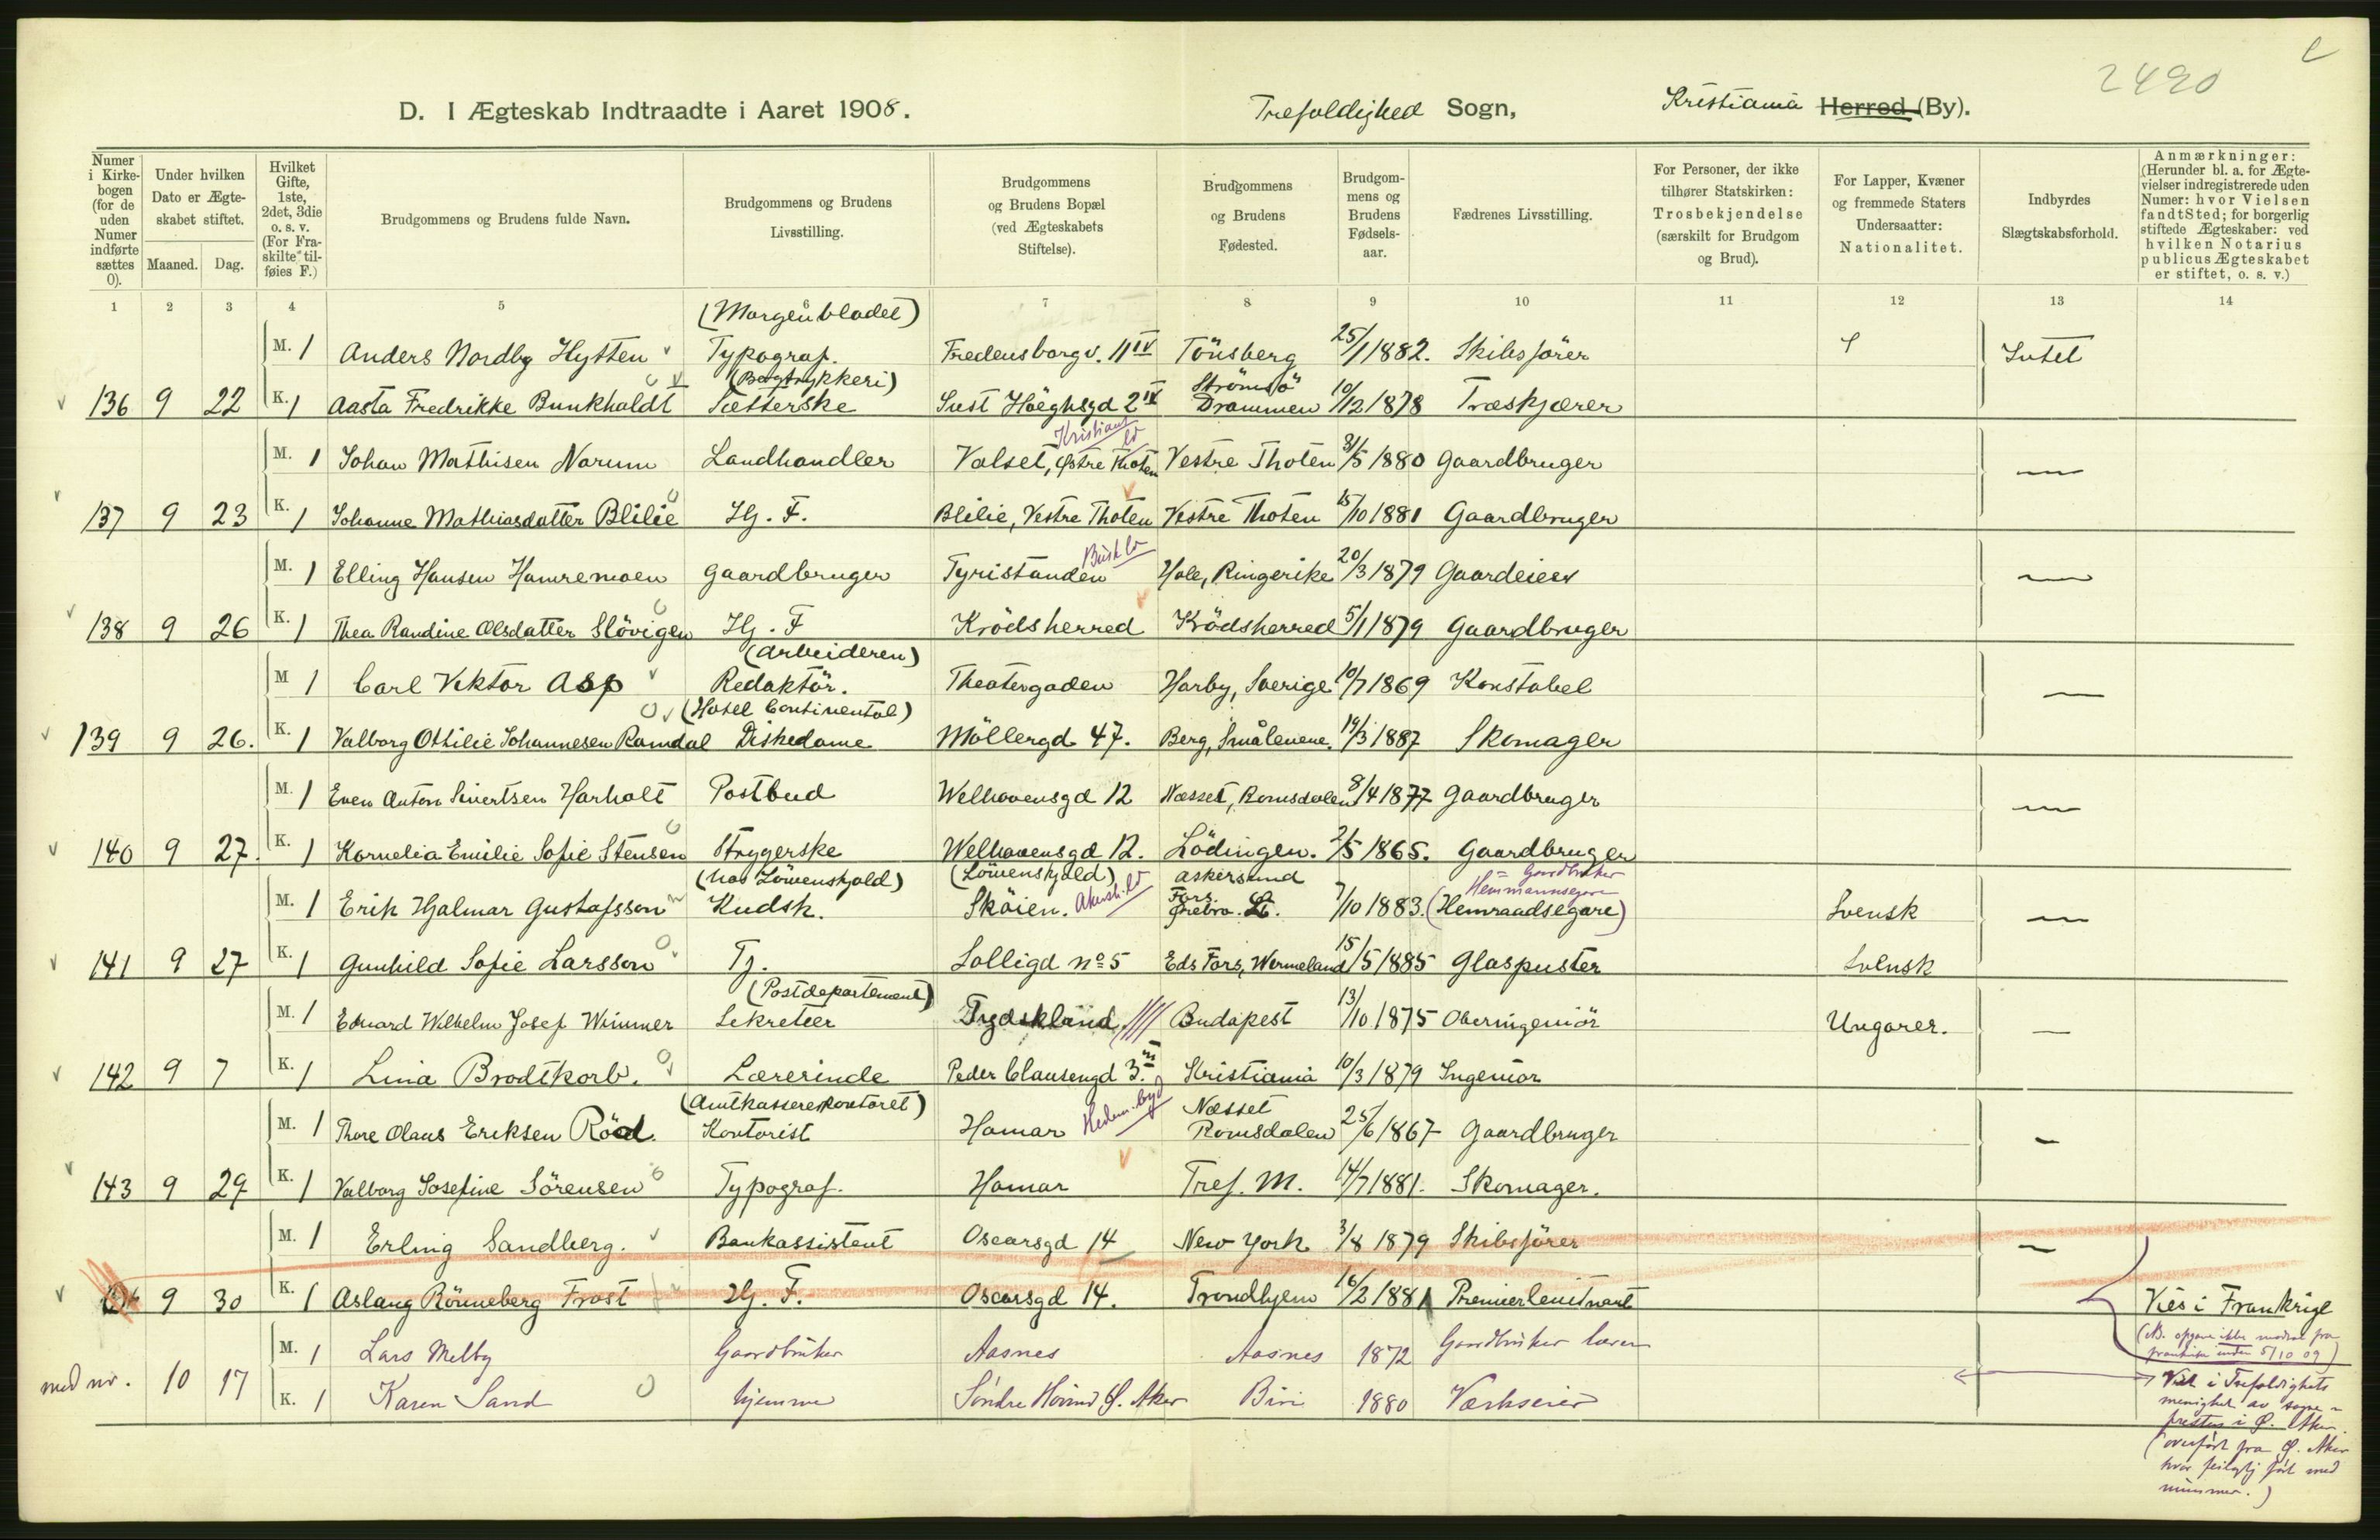 2490
D. I Ægteskab Indtraadte i Aaret 1908. Trefoldighed Sogn, Kristiania Herred (By).
Numer i Kirkebogen (for de uden Numer indførte sættes 0).
Under hvilken Dato er Ægteskabet stiftet.
Maaned. Dag.
Hvilket Gifte, 1ste, 2det, 3die o. s. v. (For Fraskilte tilføies F.)
Brudgommens og Brudens fulde Navn.
Brudgommens og Brudens Livsstilling.
Brudgommens og Brudens Bopæl (ved Ægteskabets Stiftelse).
Brudgommens og Brudens Fødested.
Brudgommens og Brudens Fødselsaar.
Fædrenes Livsstilling.
For Personer, der ikke tilhører Statskirken: Trosbekjendelse (særskilt for Brudgom og Brud).
For Lapper, Kvæner og fremmede Staters Undersaatter: Nationalitet.
Indbyrdes Slægtskabsforhold.
Anmærkninger: (Herunder bl. a. for Ægtevielser indregistrerede uden Numer: hvor Vielsen fandt Sted; for borgerlig stiftede Ægteskaber: ved hvilken Notarius publicus Ægteskabet er stiftet, o. s. v.)
1 2 3 4 5 6 7 8 9 10 11 12 13 14
(Morgenbladet)
M. 1 Anders Nordby Hytten Typograf. Fredensborgv. 11 IV Tönsberg 25/1 1882. Skibsförer Intet
(Bogtrykkeri) Strömsö
136 9 22 K. 1 Aasta Fredrikke Bunkholdt Sætterske Sust Höeghsgd 2 IV Drammen 10/12 1878 Træskjærer
M. 1 Johan Mathisen Narum Landhandler Valset, Østre Thoten Vestre Thoten 31/5 1880 Gaardbruger —
137 9 23 K. 1 Johanne Mathiasdatter Blilie Hj. F. Blilie, Vestre Thoten Vestre Thoten 15/10 1881 Gaardbruger
M. 1 Elling Hansen Hamremoen Gaardbruger Tyristanden Busk ld Hole, Ringerike 20/3 1879 Gaardeier —
138 9 26 K. 1 Thea Randine Olsdatter Slövigen Hj. F Krödsherred Krödsherred 5/1 1879 Gaardbruger
(Arbeideren)
M 1 Carl Viktor Asp Redaktör. Theatergaden Harby, Sverige 10/7 1869 Konstabel —
(Hotel Continental)
139 9 26. K. 1 Valborg Ottilie Johannesen Ramdal Diskedame Möllergd 47. Berg, Smålenene. 19/3 1887 Skomager
M. 1 Even Anton Sivertsen Harholt Postbud Welhavensgd 12 Næsset, Romsdalen 8/4 1877 Gaardbruger —
140 9 27. K. 1 Kornelia Emilie Sofie Stensen Strygerske Welhavensgd 12. Lödingen. 2/5 1865. Gaardbruger
(hos Löwenskjold) (Löwenskjold) Askersund = Gaardbruker
Hemmansegare
M. 1 Erik Hjalmar Gustafsson Kudsk. Sköien. Akersh. ld Fors. Örebro. L. 7/10 1883. (Hemraadsegare) Svensk —
141 9 27 K. 1 Gunhild Sofie Larsson Tj. Solligd no 5 Eds Fors, Wermeland 15/5 1885 Glaspuster Svensk
(Postdepartement)
M. 1 Eduard Wilhelm Josef Wimmer Sekretær Tydskland Budapest 13/10 1875 Oberingeniör Ungarer. —
142 9 7 K. 1 Lina Brodtkorb. Lærerinde Peder Clausengd 3. III Kristiania 10/3 1879 Ingeniör
(Amtkasserekontoret) Næsset
M. 1 Thore Olaus Eriksen Röd. Kontorist Hamar Hedm. byd Romsdalen 25/6 1867 Gaardbruger —
143 9 29 K. 1 Valborg Josefine Sörensen Typograf. Hamar Tref. M. 14/7 1881. Skomager.
M. 1 Erling Sandberg. Bankassistent Oscarsgd 14 New York 3/8 1879 Skibsförer —
9 30 K. 1 Aslaug Rönneberg Frost Hj. F. Oscarsgd 14. Trondhjem 16/2 1881 Premierleutnant Vies i Frankrige
M. 1 Lars Melby Gaardbruker Aasnes Aasnes 1872 Gaardbruker
10 17 K. 1 Karen Sand hjemme Söndre Hovind Ø. Aker Biri 1880 Værkseier
Viet i Trefoldighets
menighet av sogne-
presten i Ø. Aker.
(overført fra Ø. Aker
hvor feilagtig ført med
nummer.)